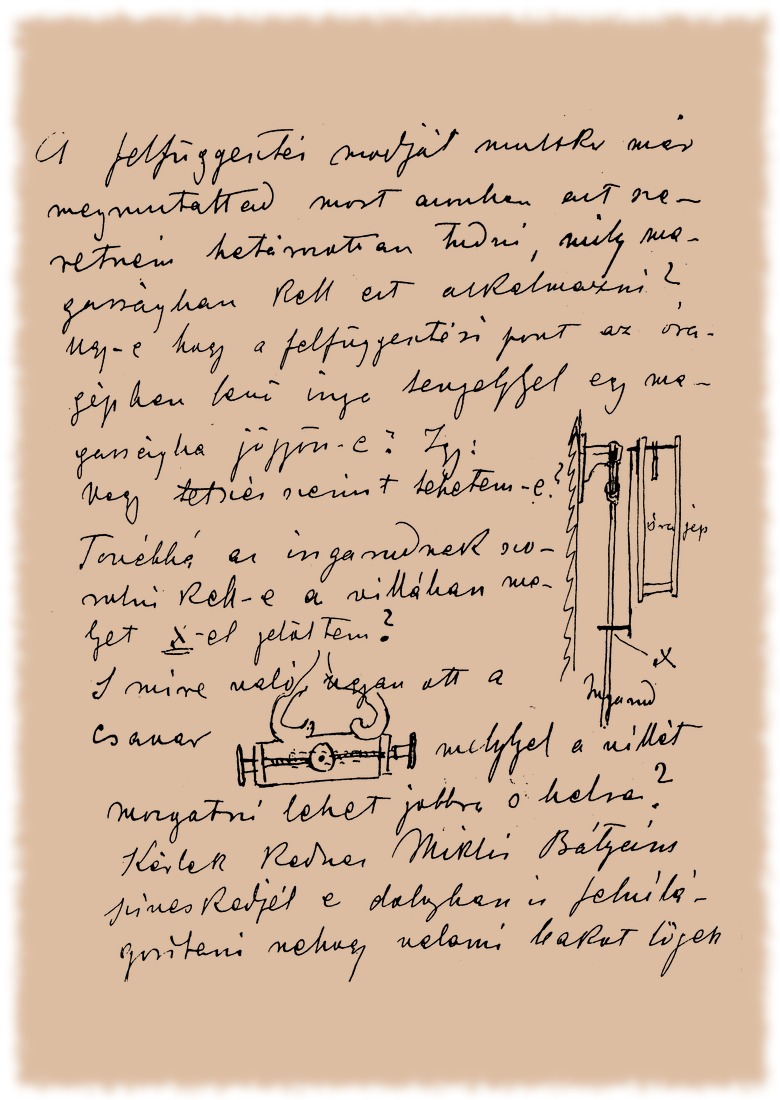 A felfüggesztés modját multkor már
megmutattad most azonban azt sze-
retném határozottan tudni, mily ma-
gasságban kell ezt alkalmazni?
Ugy-e hogy a felfüggesztési pont az óra-
gépben levő inga tengelylyel egy ma-
gasságba jőjjön-e? Igy:
Vagy tetszés szerint tehetem-e?
óra gép
Továbbá az ingarudnak szo-
rulni kell-e a villában me-
lyet x-el jelöltem?
x
Ingarud
S mire való ugyan ott a
csavar melylyel a villát
mozgatni lehet jobbra s balra?
Kérlek Kedves Miklós Bátyám
szíveskedjél e dologban is felvilá-
gosítani nehogy valami bakot lőjek